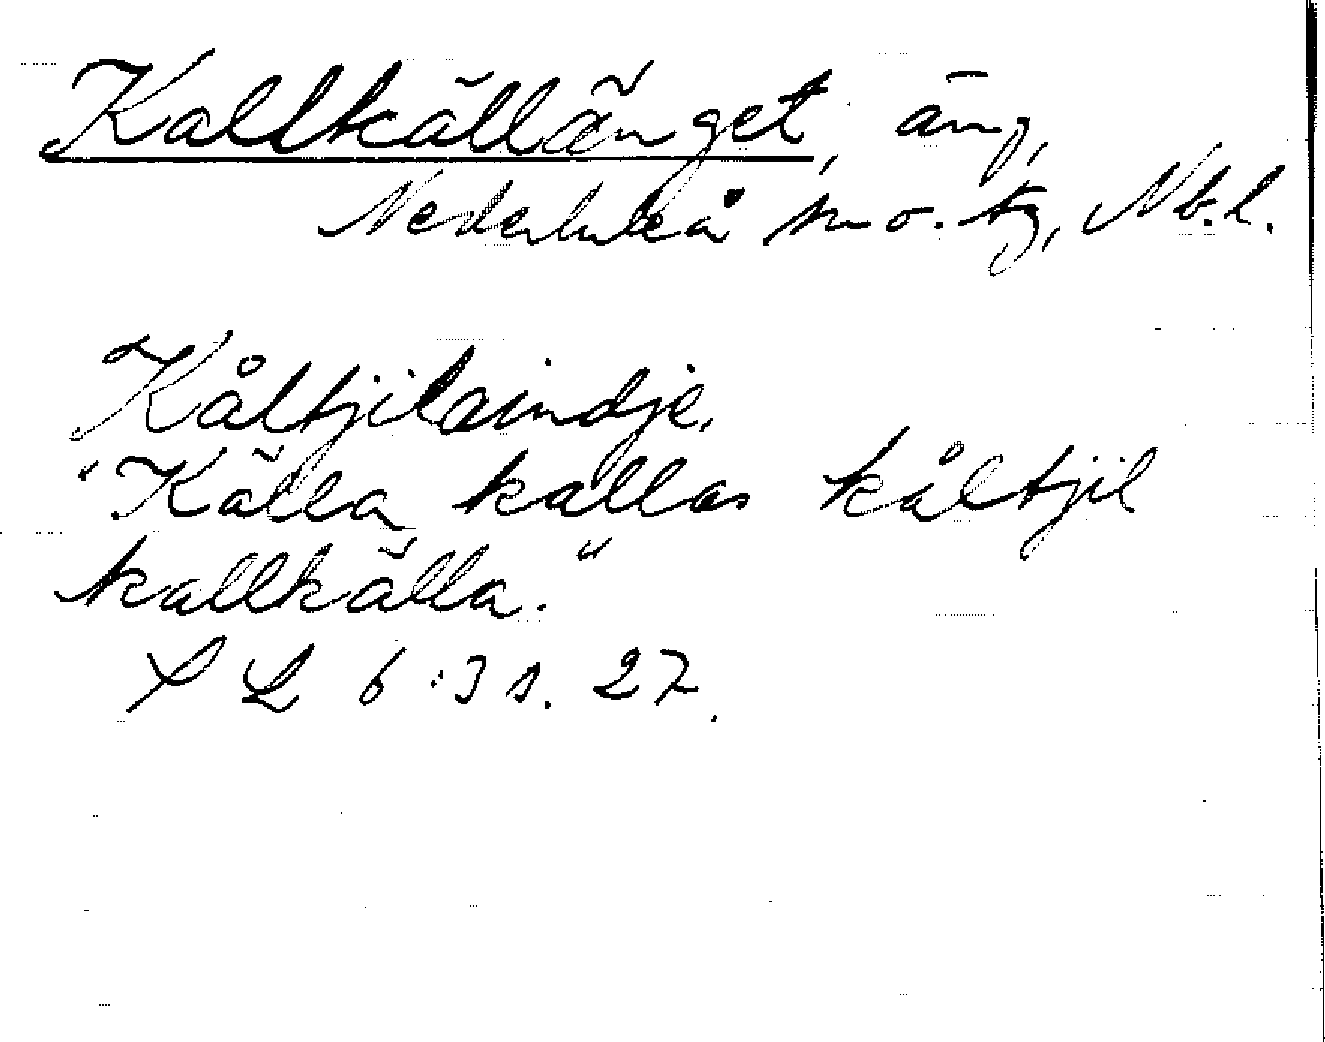 Kallkällänget, äng,
Nederluleå sn o. tg, Nb.l.
Kåltjilaindje.
"Källa kallas kåltjil
kallkälla."
S L 6:3 s. 27.